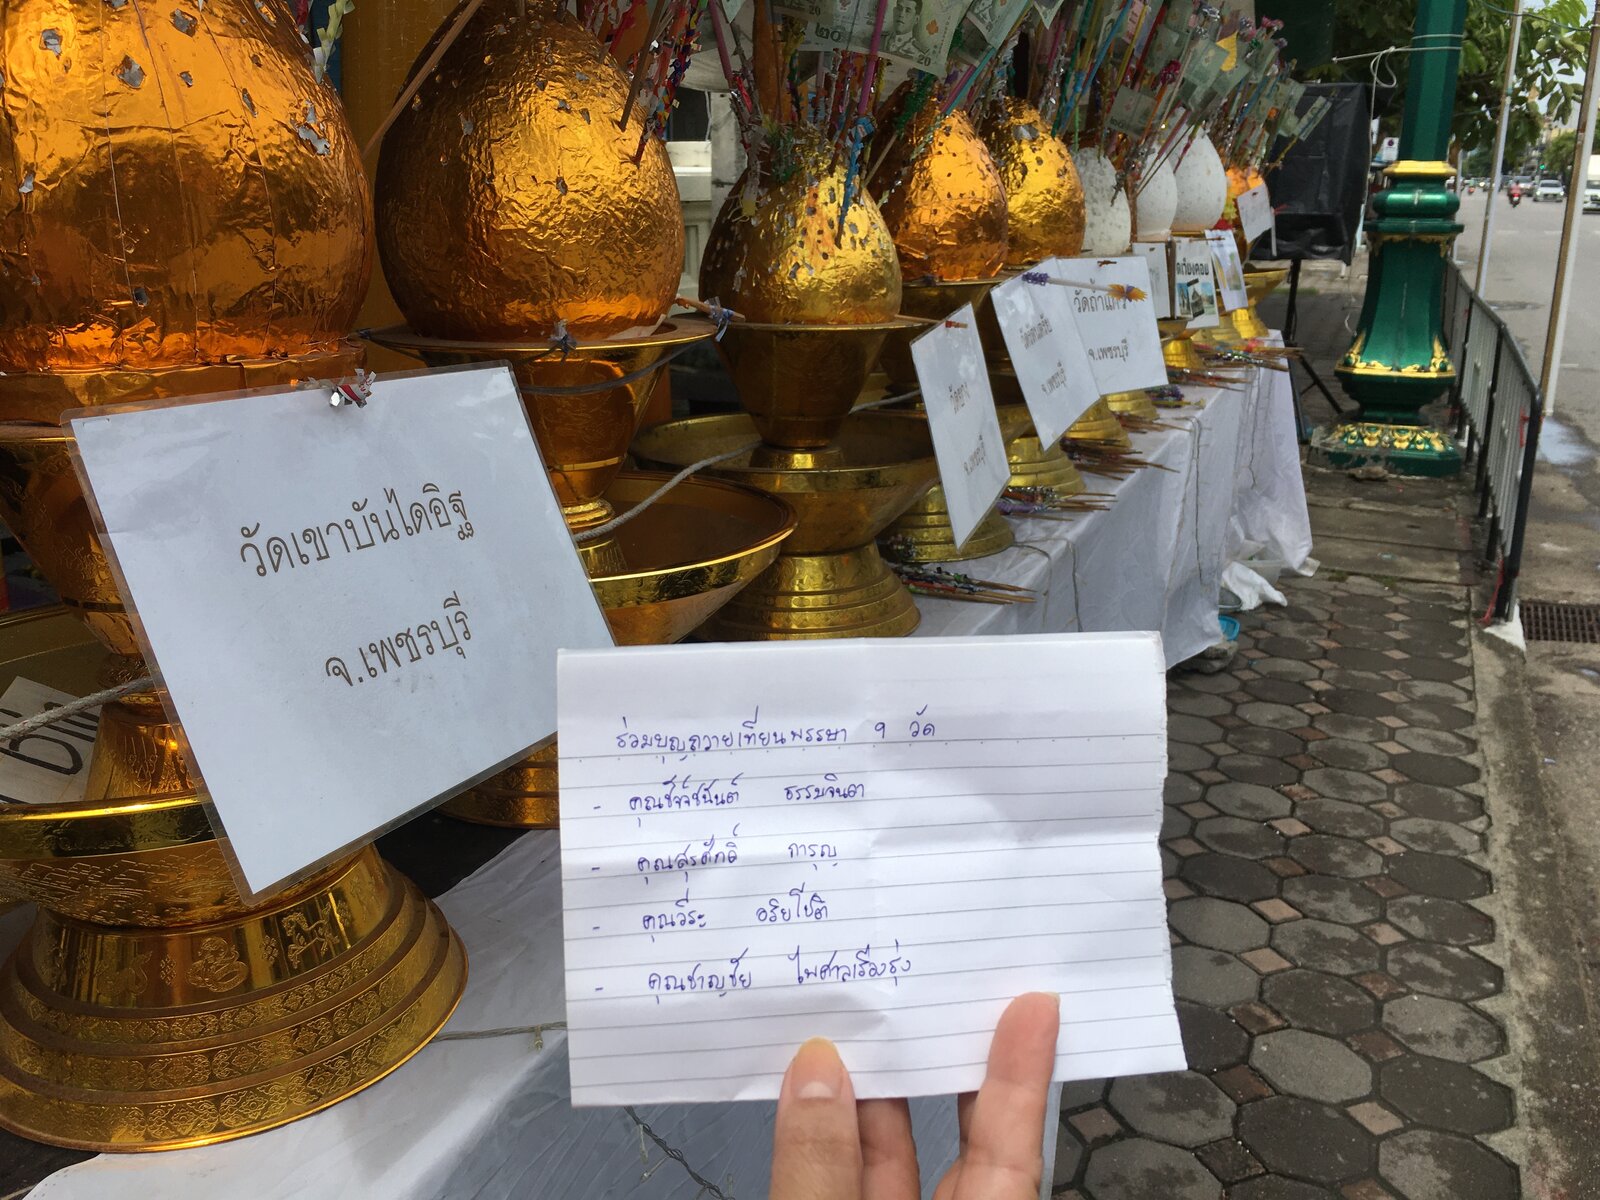 วัดเขาบันไดอิฐ
จ.เพชรบุรี
จ.เพชรบุรี
จ.เพชรบุรี
วัดถ้ำแก้ว
จ.เพชรบุรี
20
20
ร่วมบุญถวายเทียนพรรษา 9 วัด
- คุณชัจจ์ชนันต์ ธรรมจินดา
- คุณสุรศักดิ์ การุญ
- คุณวีระ อริยโชติ
- คุณชาญชัย ไพศาลเรืองรุ่ง